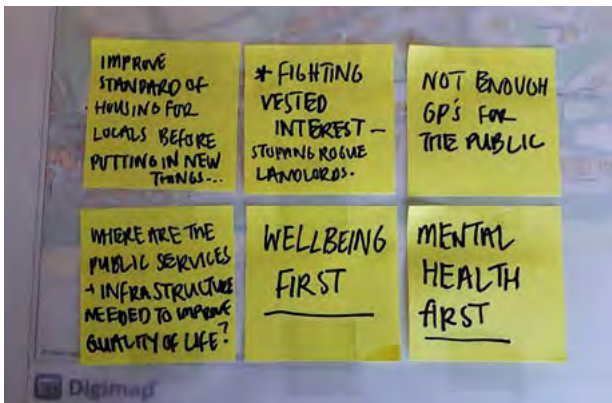 IMPROVE
STANDARD OF
HOUSING FOR
LOCALS BEFORE
PUTTING IN NEW
THINGS...
* FIGHTING
VESTED
INTEREST –
STOPPING ROGUE
LANDLORDS.
NOT ENOUGH
GP'S FOR
THE PUBLIC
WHERE ARE THE
PUBLIC SERVICES
+ INFRASTRUCTURE
NEEDED TO IMPROVE
QUALITY OF LIFE?
WELLBEING
FIRST
MENTAL
HEALTH
FIRST
Digimap